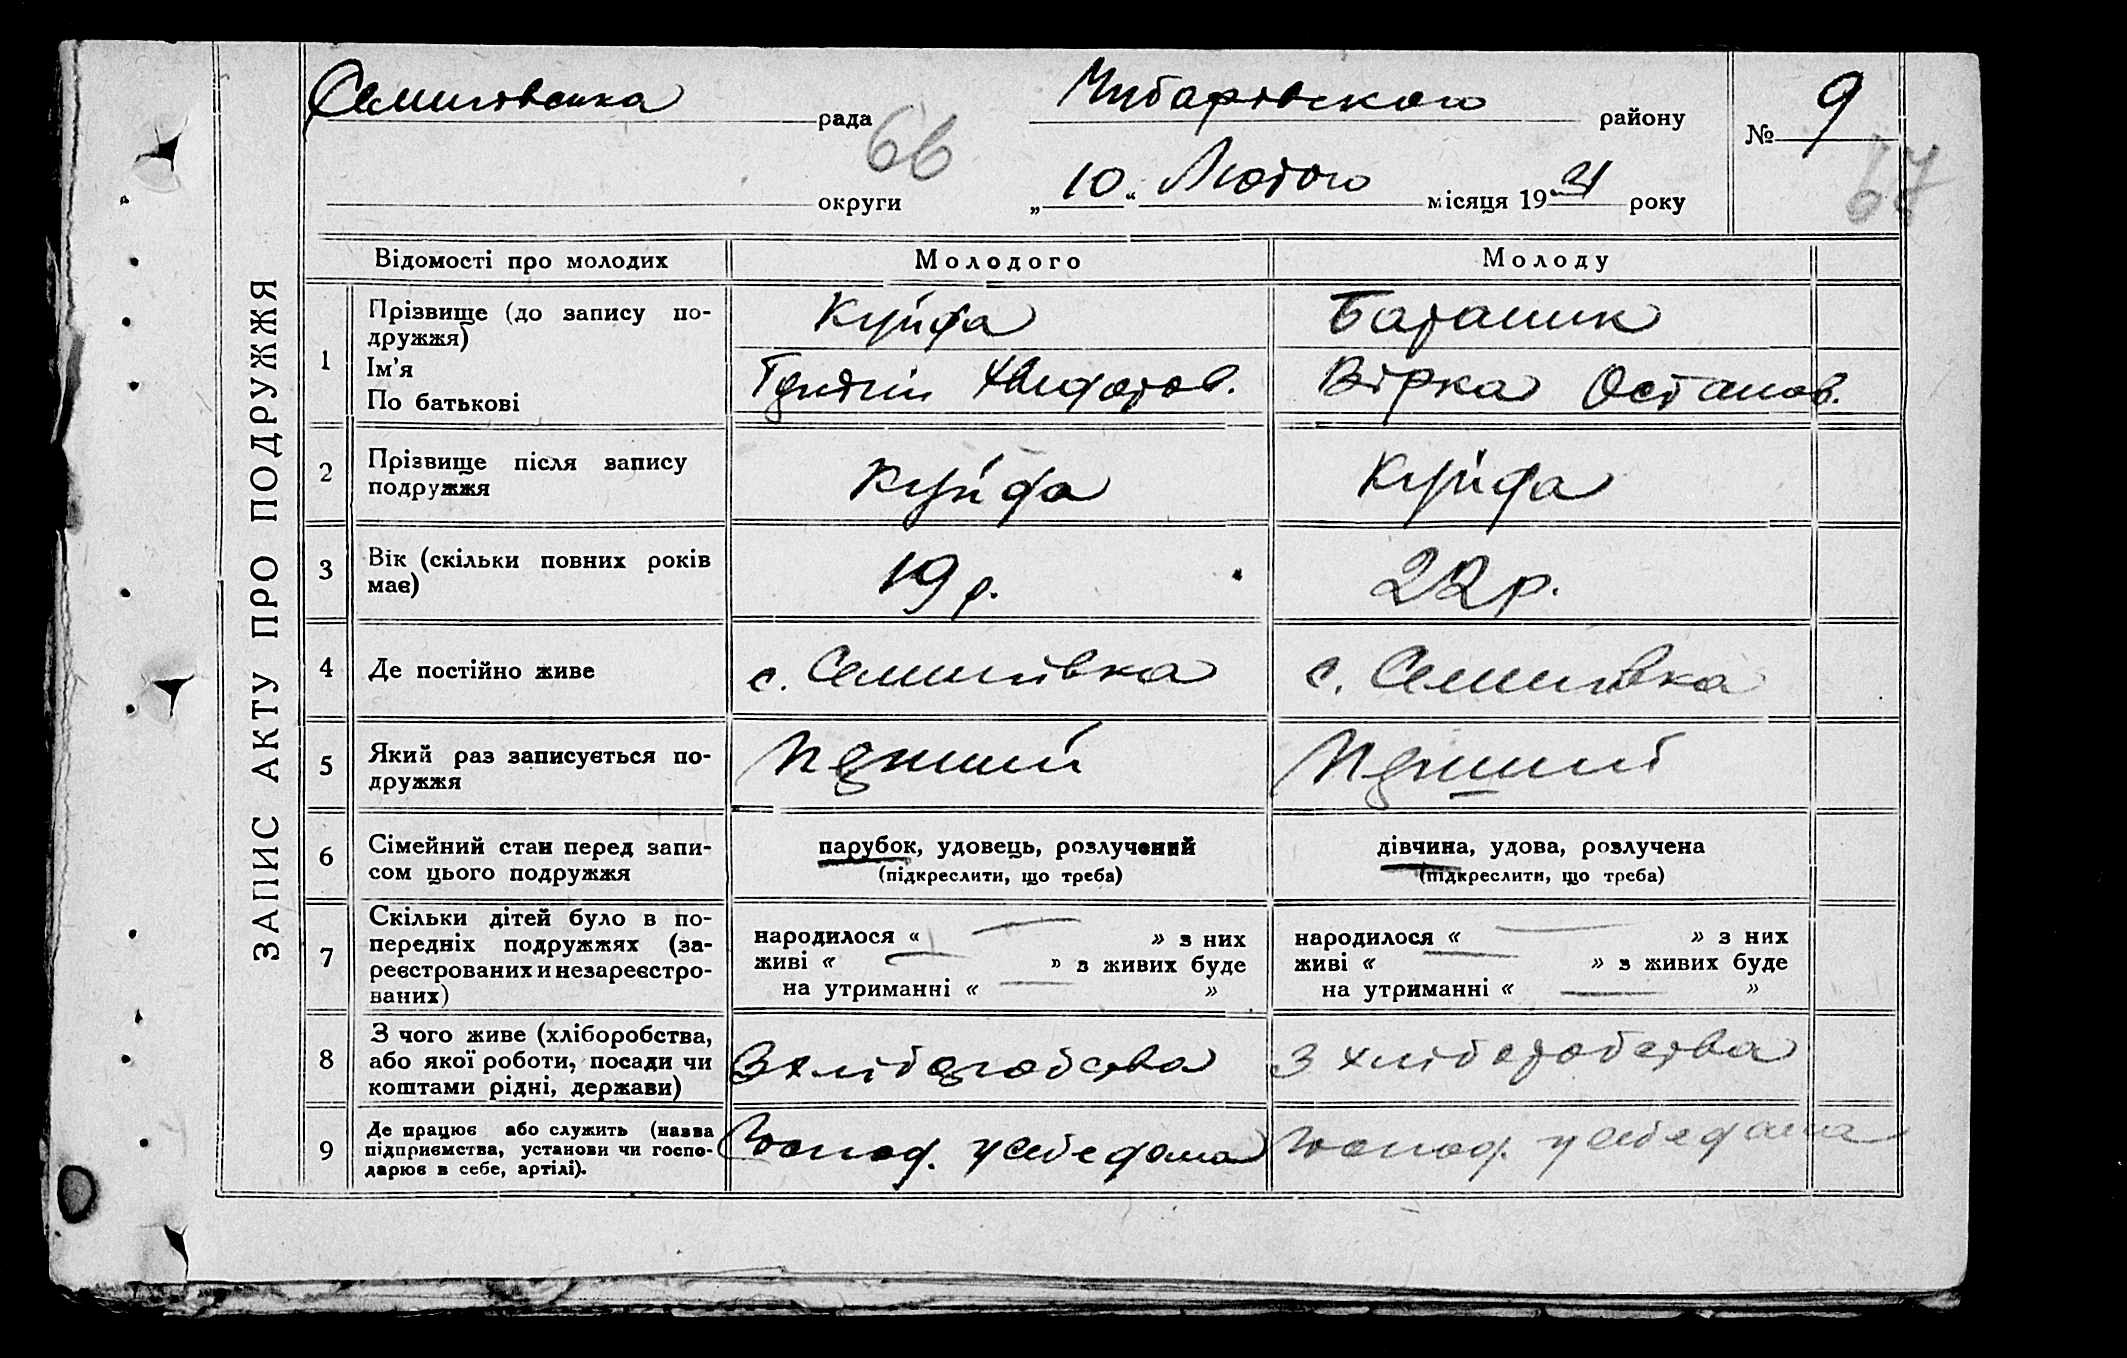 Семигівська рада
66
Чубарівського району
№ 9
67
округи
„10“ Лютого місяця 1931 року
ЗАПИС АКТУ ПРО ПОДРУЖЖЯ
Відомості про молодих Молодого Молоду
1
Прізвище (до запису по-
дружжя)
Ім’я
По батькові
Куйда Баташик
Вірка Остапов.
2
Прізвище після запису
подружжя
Куйда Куйда
3
Вік (скільки повних років
має)
19 р. 22 р.
4
Де постійно живе
с. Семигівка с. Семигівка
5
Який раз записується по-
дружжя
Перший Перший
6
Сімейний стан перед запи-
сом цього подружжя
парубок, удовець, розлучений
(підкреслити, що треба)
дівчина, удова, розлучена
(підкреслити, що треба)
7
Скільки дітей було в по-
передніх подружжях (за-
реєстрованих и незареєстро-
ваних)
народилося « — » з них
живі « — » з живих буде
на утриманні « — »
народилося « — » з них
живі « — » з живих буде
на утриманні « — »
8
З чого живе (хліборобства,
або якої роботи, посади чи
коштами рідні, держави)
З хліборобства З хліборобства
9
Де працює або служить (назва
підприємства, установи чи госпо-
дарює в себе, артілі).
Господ. у себе дома Господ. у себе дома